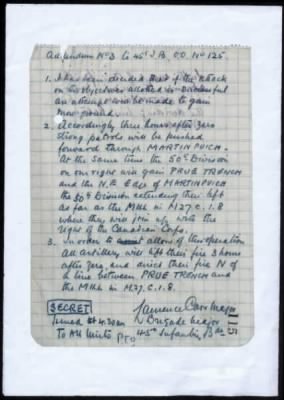 Addendum No 3 to 45th I.B. O.O. No 125.
1. It has been decided that if the attack
on the objectives allotted is successful
an attempt will be made to gain
more ground.
2. Accordingly three hours after zero
strong patrols will be pushed
forward through MARTINPUICH.
At the same time the 50th Division
on our right will gain PRUE TRENCH
and the N.E. Edge of MARTINPUICH
the 50th Division extending their left
as far as the Mill in M.27.C.1.8
where they will join up with the
right of the Canadian Corps.
3. In order to allow of this operation
all artillery will lift their fire 3 hours
after zero and direct their fire N of
a line between PRUE TRENCH and
the Mill in M.27.C.1.8.
SECRET
Issued at 4.30am
To All Units PTO
Laurence Carr Major
Brigade Major
45th Infantry Bde
115